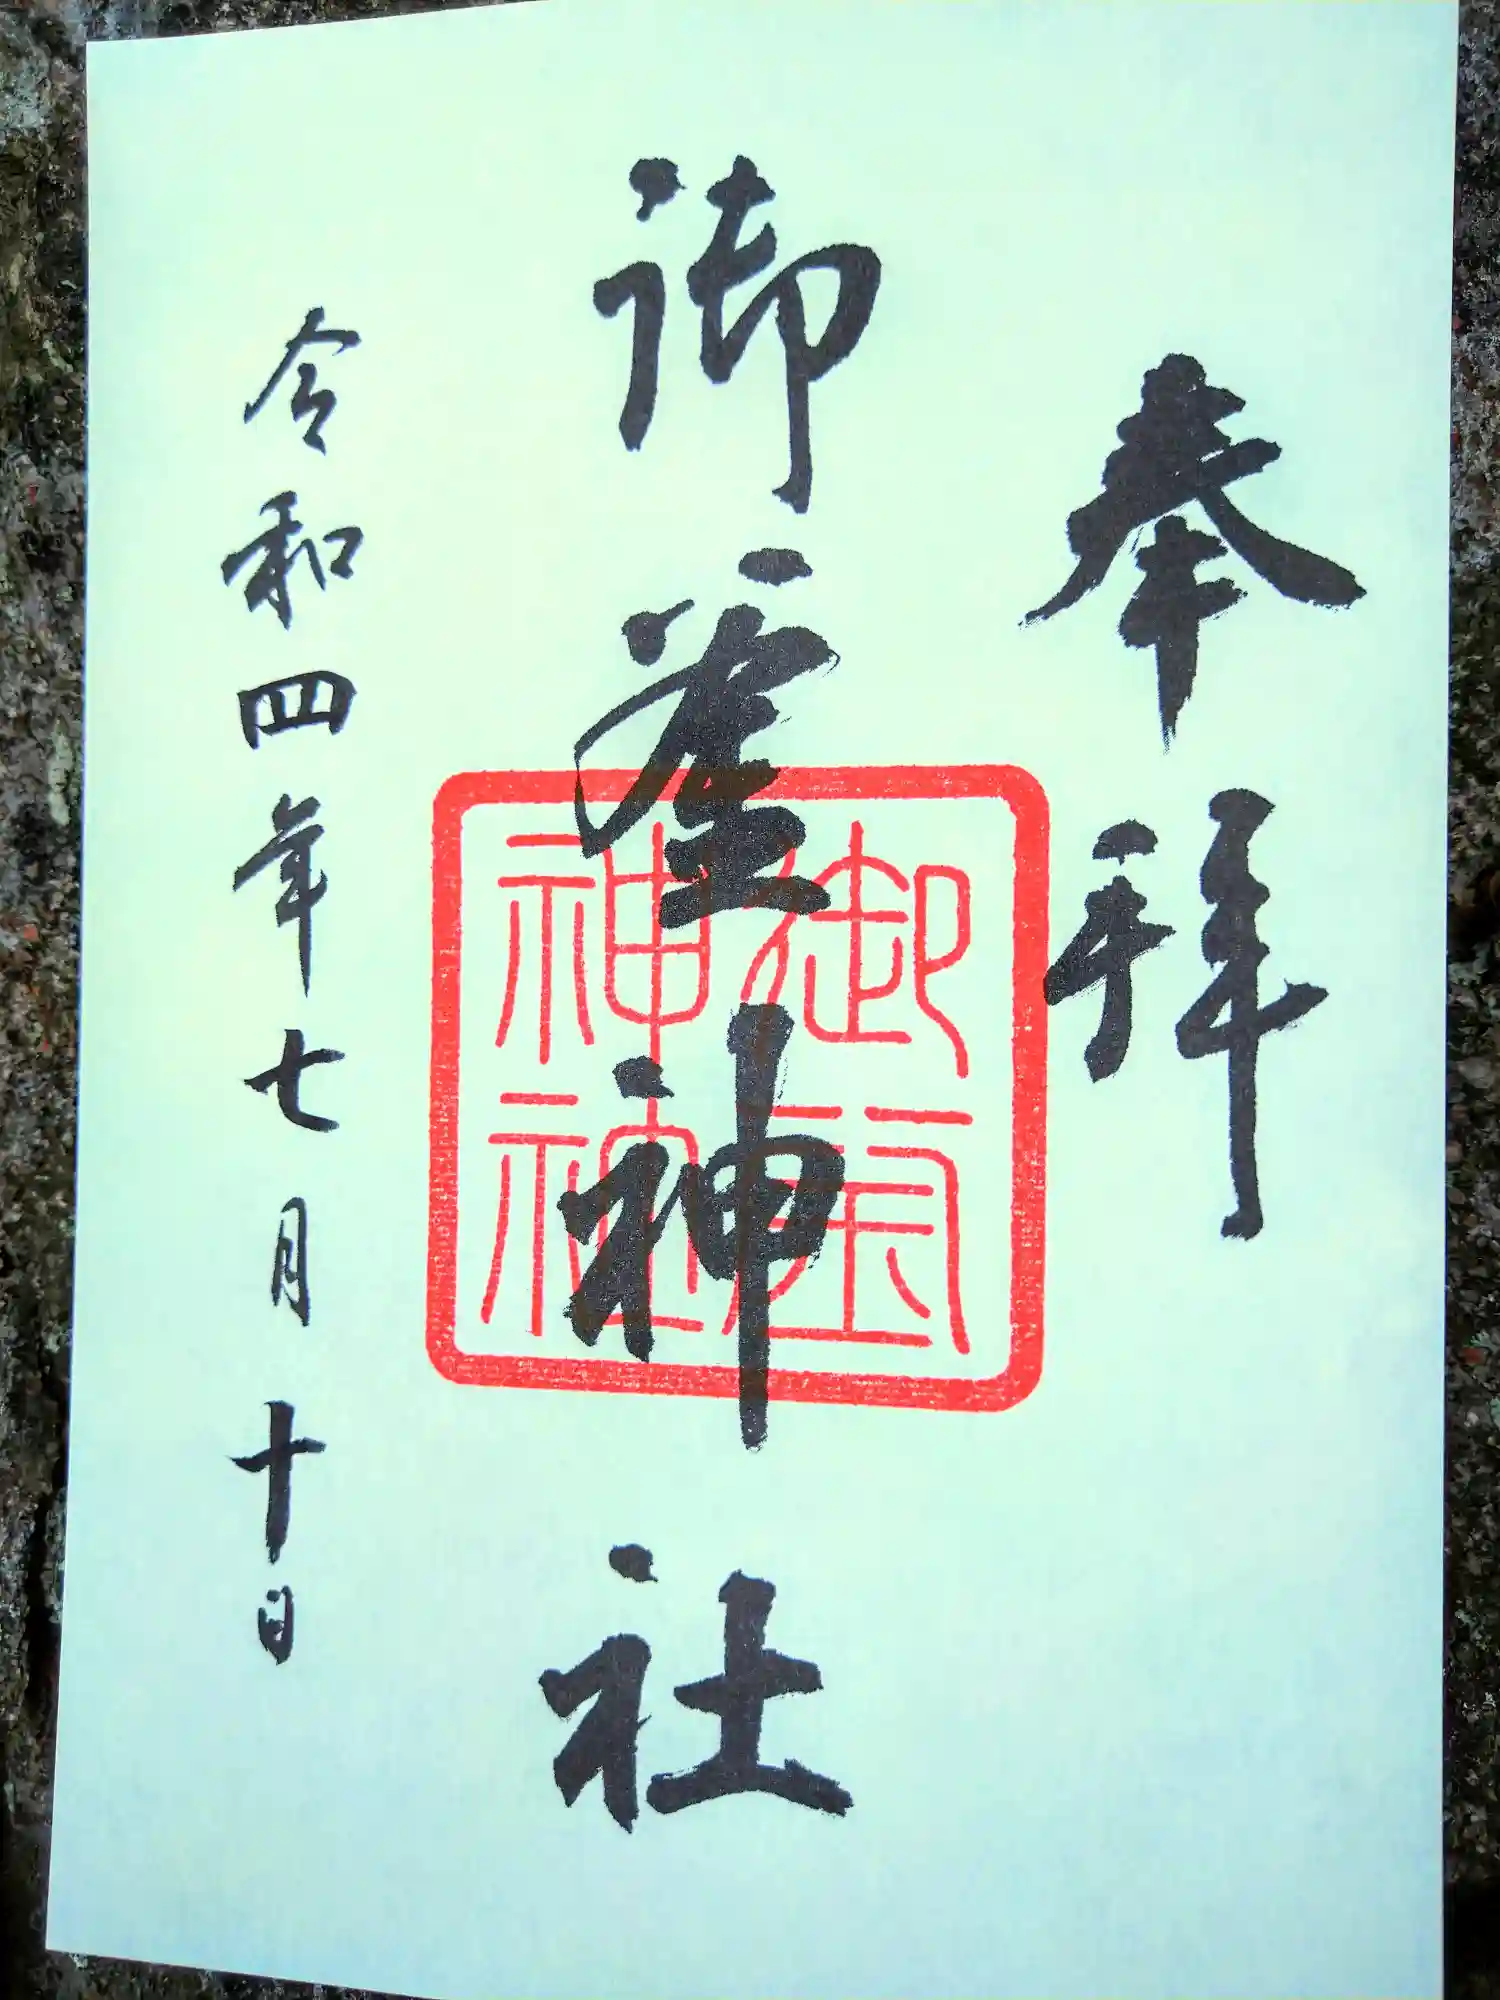 奉拝
御釜神社
御釜
神社
令和四年七月十日